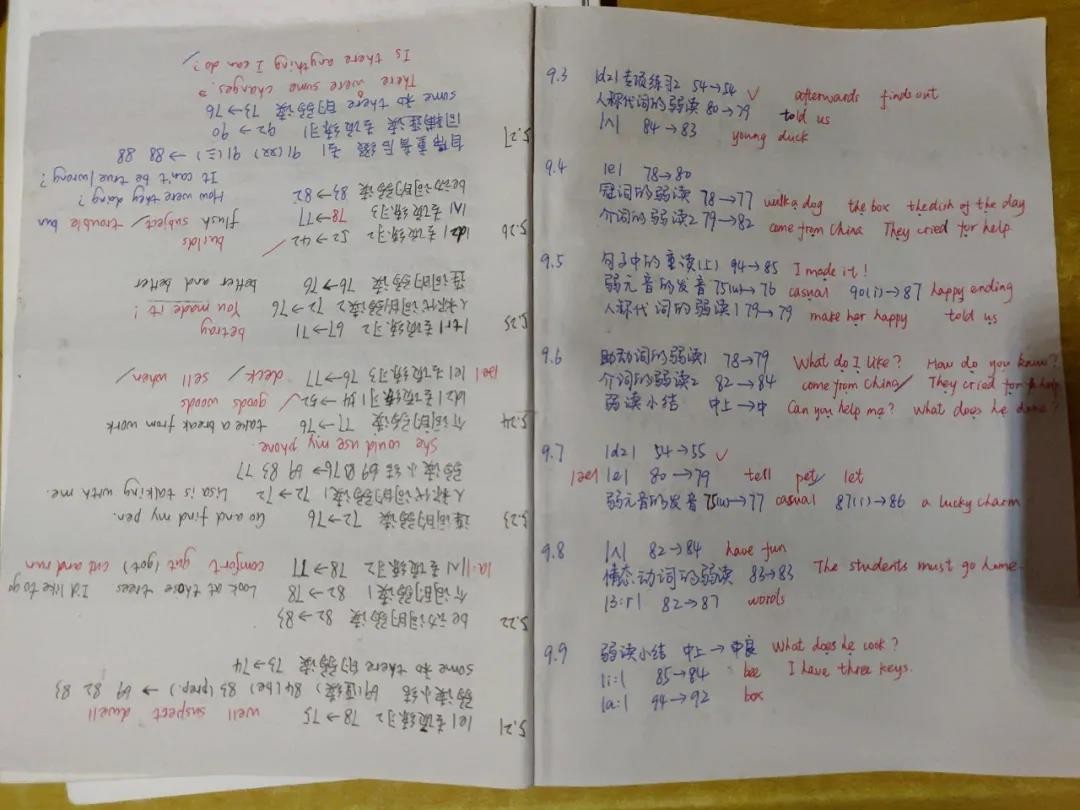 5.21 |e|专项练习2 78→75 well suspect dwell
弱读小结 84(be) 83(prep.) → 69 82 83
some和there的弱读 73→74
5.22 be动词的弱读 82→83
介词的弱读1 82→78 Look at those trees I'd like to go
|a:||ʌ|专项练习2 78→77 comfort gut (got) cut and run
5.23 连词的弱读 72→76 Go and find my pen.
人称代词的弱读1 72→72 Lisa is talking with me.
弱读小结 69 76→69 83 77
She could use my phone.
5.24 介词的弱读 77→76 take a break from work
|dz|专项练习1 54→52 goods woods
|æ| |e|专项练习3 76→77 deck / sell when /
5.25 |tr|专项练习2 67→71 betray
人称代词的弱读2 72→76 You made it!
连词的弱读 76→76 better and better
5.26 |dz|专项练习2 52→42 / builds
|ʌ|专项练习3 78→77 flush subject / trouble bun
be动词的弱读 83→82 How were they doing?
It can't be true/wrong?
5.27 自带重音后缀 91(三) → 88 88
同辅连读专项练习1 92→90
some和there的弱读 73→76
There were some changes.
Is there anything I can do? /
9.3 |dz|专项练习2 54→54 ✓ afterwards finds out
人称代词的弱读 80→79 told us
|ʌ| 84→83 young duck
9.4 |e| 78→80
冠词的弱读 78→77 walk a dog the box the dish of the day
介词的弱读2 79→82 come from China They cried for help.
9.5 句子中的重读(上) 94→85 I made it!
弱元音的发音 75(u)→76 casual 90(i)→87 happy ending
人称代词的弱读1 79→79 make her happy told us
9.6 助动词的弱读1 78→79 What do I like? How do you know?
介词的弱读2 82→84 come from China/ They cried for help
弱读小结 中上→中 Can you help me? What does he done?
9.7 |dz| 54→55 ✓
|æ| |e| 80→79 tell pet/ let
弱元音的发音 75(u)→77 casual 87(i)→86 a lucky charm
9.8 |ʌ| 82→84 have fun
情态动词的弱读 83→83 The students must go home.
|3:r| 82→87 words
9.9 弱读小结 中上→中良 What does he cook?
|i:| 85→84 bee I have three keys.
|a:| 94→92 box